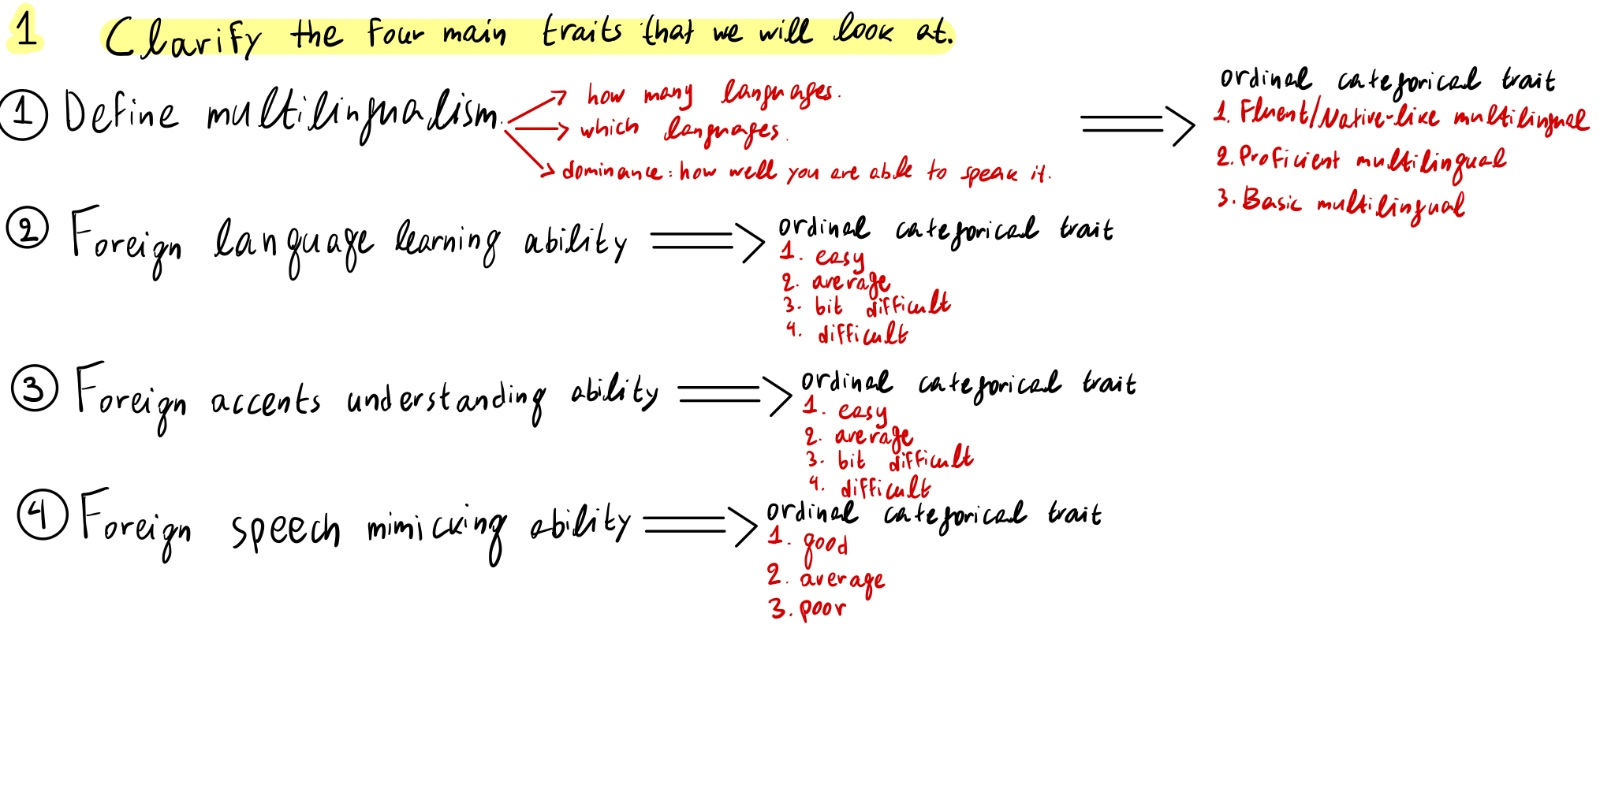 1 Clarify the four main traits that we will look at.
① Define multilingualism.
how many languages.
which languages.
dominance: how well you are able to speak it.
ordinal categorical trait
1. Fluent/Native-like multilingual
2. Proficient multilingual
3. Basic multilingual
② Foreign language learning ability
ordinal categorical trait
1. easy
2. average
3. bit difficult
4. difficult
③ Foreign accents understanding ability
ordinal categorical trait
1. easy
2. average
3. bit difficult
4. difficult
④ Foreign speech mimicking ability
ordinal categorical trait
1. good
2. average
3. poor